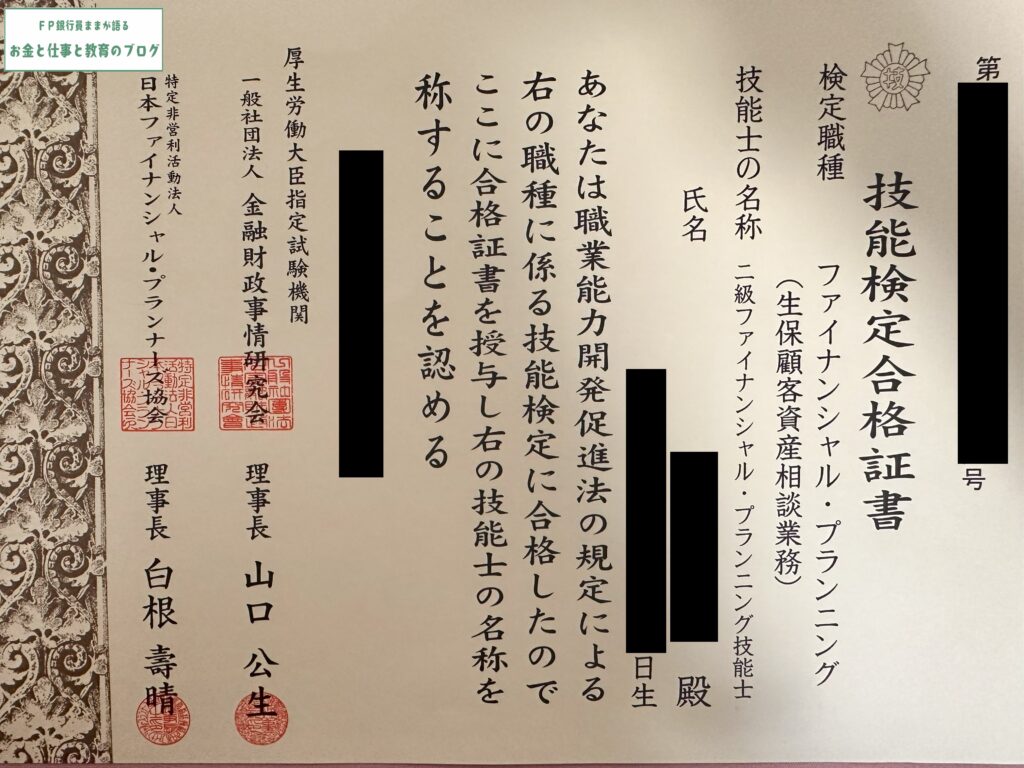 FP銀行員ままが語る
お金と仕事と教育のブログ
第
号
技能検定合格証書
検定職種
ファイナンシャル・プランニング
(生保顧客資産相談業務)
技能士の名称 二級ファイナンシャル・プランニング技能士
氏名
殿
日生
あなたは職業能力開発促進法の規定による
右の職種に係る技能検定に合格したので
ここに合格証書を授与し右の技能士の名称を
称することを認める
厚生労働大臣指定試験機関
一般社団法人 金融財政事情研究会 理事長 山口 公生
特定非営利活動法人
日本ファイナンシャル・プランナーズ協会 理事長 白根 壽晴